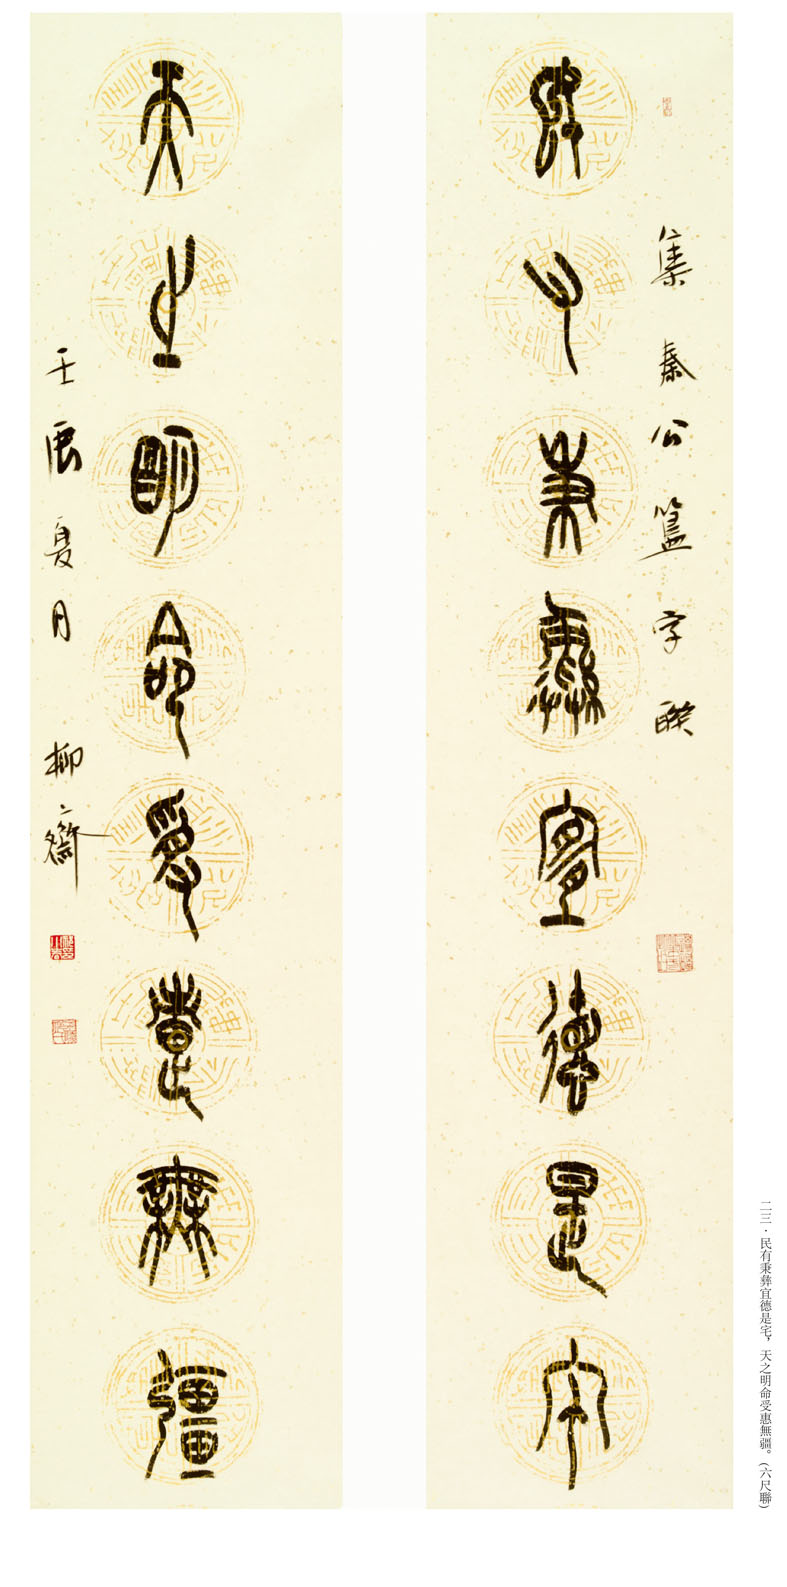 集秦公簋字聯
民有秉彝宜德是宅
天之明命受惠無疆
壬辰夏月 柳齋
二三·民有秉彝宜德是宅，天之明命受惠無疆。（六尺聯）